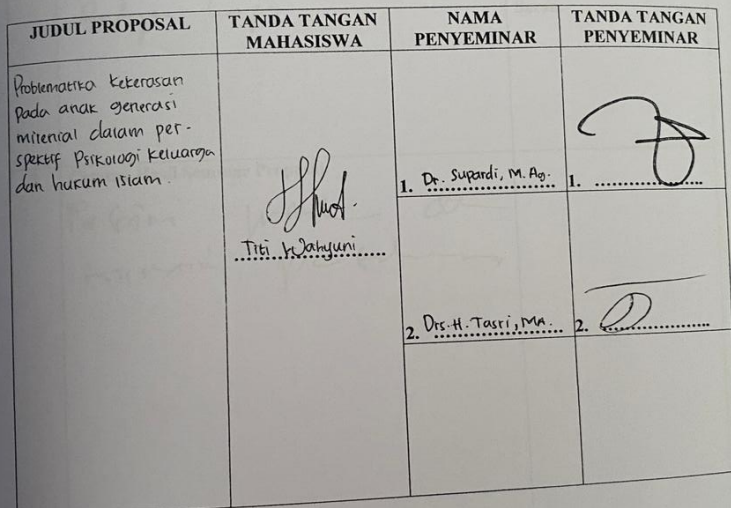 JUDUL PROPOSAL
TANDA TANGAN
MAHASISWA
NAMA
PENYEMINAR
TANDA TANGAN
PENYEMINAR
Problematika kekerasan
pada anak generasi
milenial dalam per-
spektif Psikologi Keluarga
dan hukum islam.
Titi Wahyuni
1. Dr. Supardi, M.Ag.
1.
2. Drs. H. Tasri, MA.
2.